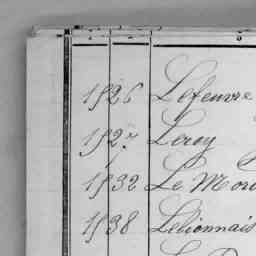 1526 Lefeuvre
1527 Leroy
1532 Le Mor
1538 Lelionnais